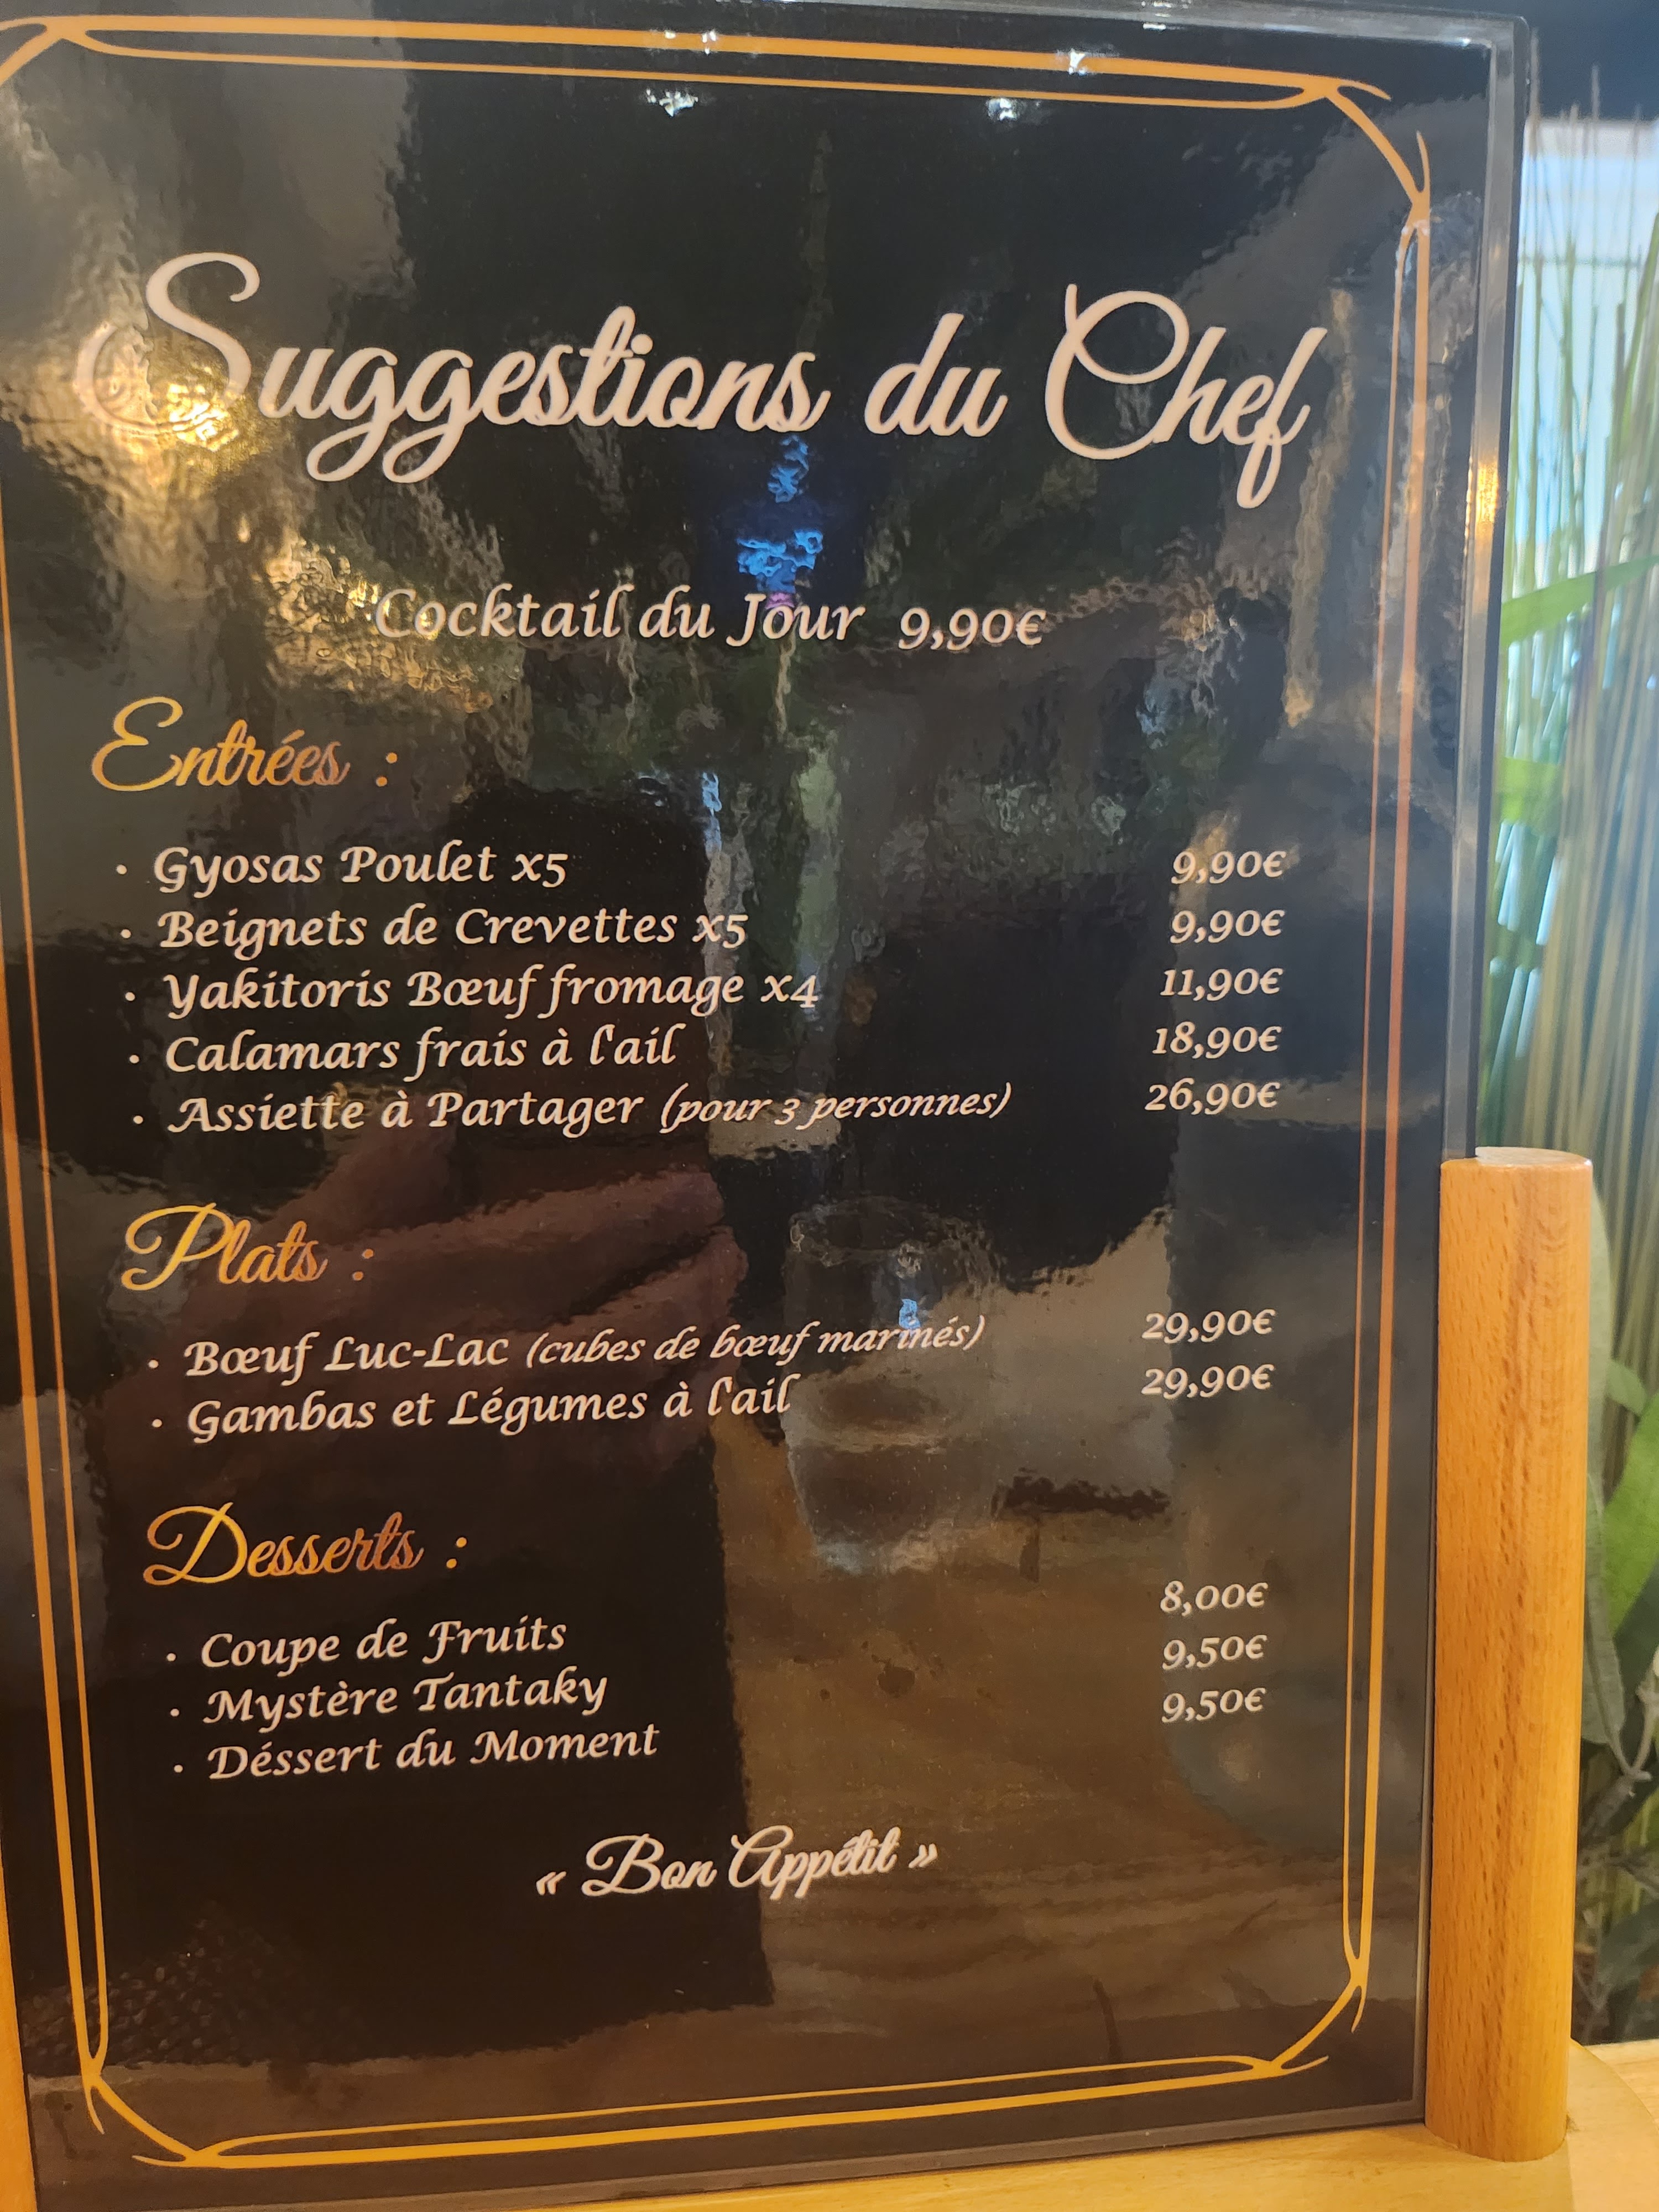 Suggestions du Chef
Cocktail du Jour 9,90€
Entrées :
· Gyosas Poulet x5 9,90€
· Beignets de Crevettes x5 9,90€
· Yakitoris Bœuf fromage x4 11,90€
· Calamars frais à l'ail 18,90€
· Assiette à Partager (pour 3 personnes) 26,90€
Plats :
· Bœuf Luc-Lac (cubes de bœuf marinés) 29,90€
· Gambas et Légumes à l'ail 29,90€
Desserts :
· Coupe de Fruits 8,00€
· Mystère Tantaky 9,50€
· Déssert du Moment 9,50€
« Bon Appétit »